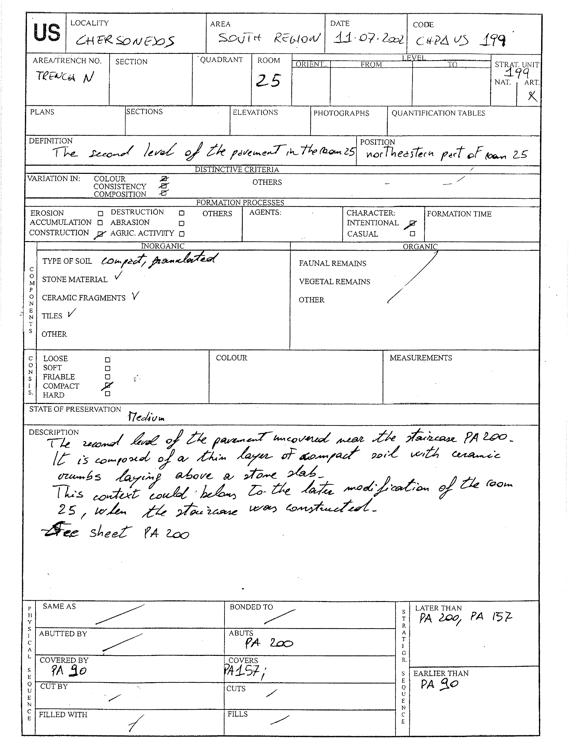 US
LOCALITY
CHERSONESOS
AREA
SOUTH REGION
DATE
11.07.2002
CODE
CHPA US 199
AREA/TRENCH NO.
TRENCH N
SECTION
QUADRANT
ROOM
25
LEVEL
ORIENT. FROM TO
STRAT. UNIT
199
NAT. ART.
X
PLANS
SECTIONS
ELEVATIONS
PHOTOGRAPHS
QUANTIFICATION TABLES
DEFINITION
The second level of the pavement in the room 25
POSITION
northeastern part of room 25
DISTINCTIVE CRITERIA
VARIATION IN: COLOUR
CONSISTENCY
COMPOSITION
OTHERS
FORMATION PROCESSES
EROSION DESTRUCTION OTHERS
ACCUMULATION ABRASION
CONSTRUCTION AGRIC. ACTIVITY
AGENTS:
CHARACTER:
INTENTIONAL
CASUAL
FORMATION TIME
COMPONENTS
INORGANIC
TYPE OF SOIL compact, granulated
STONE MATERIAL ✓
CERAMIC FRAGMENTS ✓
TILES ✓
OTHER
ORGANIC
FAUNAL REMAINS
VEGETAL REMAINS
OTHER
CONSIS.
LOOSE
SOFT
FRIABLE
COMPACT
HARD
COLOUR
MEASUREMENTS
STATE OF PRESERVATION
Medium
DESCRIPTION
The second level of the pavement uncovered near the staircase PA 200.
It is composed of a thin layer of compact soil with ceramic
crumbs laying above a stone slab.
This context could belong to the later modification of the room
25, when the staircase was constructed.
See sheet PA 200
PHYSICAL SEQUENCE
SAME AS
BONDED TO
ABUTTED BY
ABUTS
PA 200
COVERED BY
PA 90
COVERS
PA157;
CUT BY
CUTS
FILLED WITH
FILLS
STRATIGR. SEQUENCE
LATER THAN
PA 200, PA 157
EARLIER THAN
PA 90